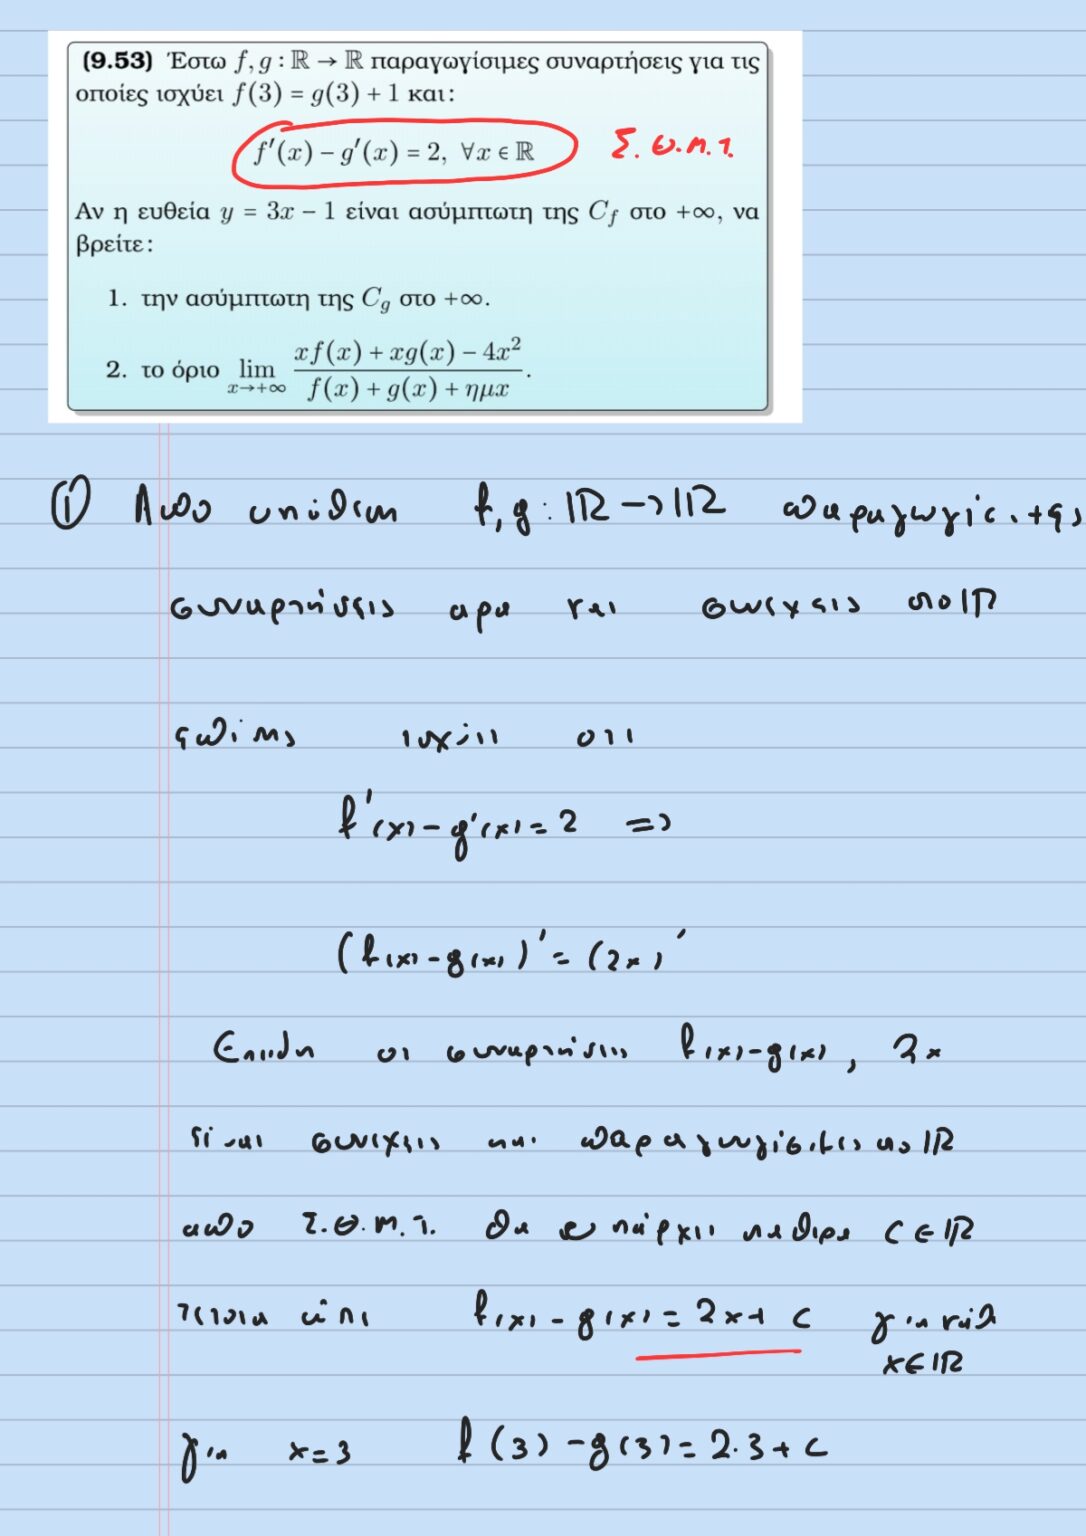 (9.53) Έστω f, g : ℝ → ℝ παραγωγίσιμες συναρτήσεις για τις
οποίες ισχύει f(3) = g(3) + 1 και:
f′(x) − g′(x) = 2, ∀x ∈ ℝ
Σ.Θ.Μ.Τ.
Αν η ευθεία y = 3x − 1 είναι ασύμπτωτη της C_f στο +∞, να
βρείτε:
1. την ασύμπτωτη της C_g στο +∞.
2. το όριο lim x→+∞ (xf(x) + xg(x) − 4x²) / (f(x) + g(x) + ημx).
① Απο υπόθεση f, g : ℝ → ℝ παραγωγίσιμες
συναρτήσεις αρα και συνεχεις στο ℝ
επίσης ισχύει οτι
f′(x) − g′(x) = 2 =>
(f(x) − g(x))′ = (2x)′
Επειδη οι συναρτήσεις f(x) − g(x), 2x
είναι συνεχεις και παραγωγίσιμες στο ℝ
απο Σ.Θ.Μ.Τ. θα υπάρχει σταθερα c ∈ ℝ
τετοια ώστε f(x) − g(x) = 2x + c για καθε
x ∈ ℝ
για x = 3 f(3) − g(3) = 2·3 + c